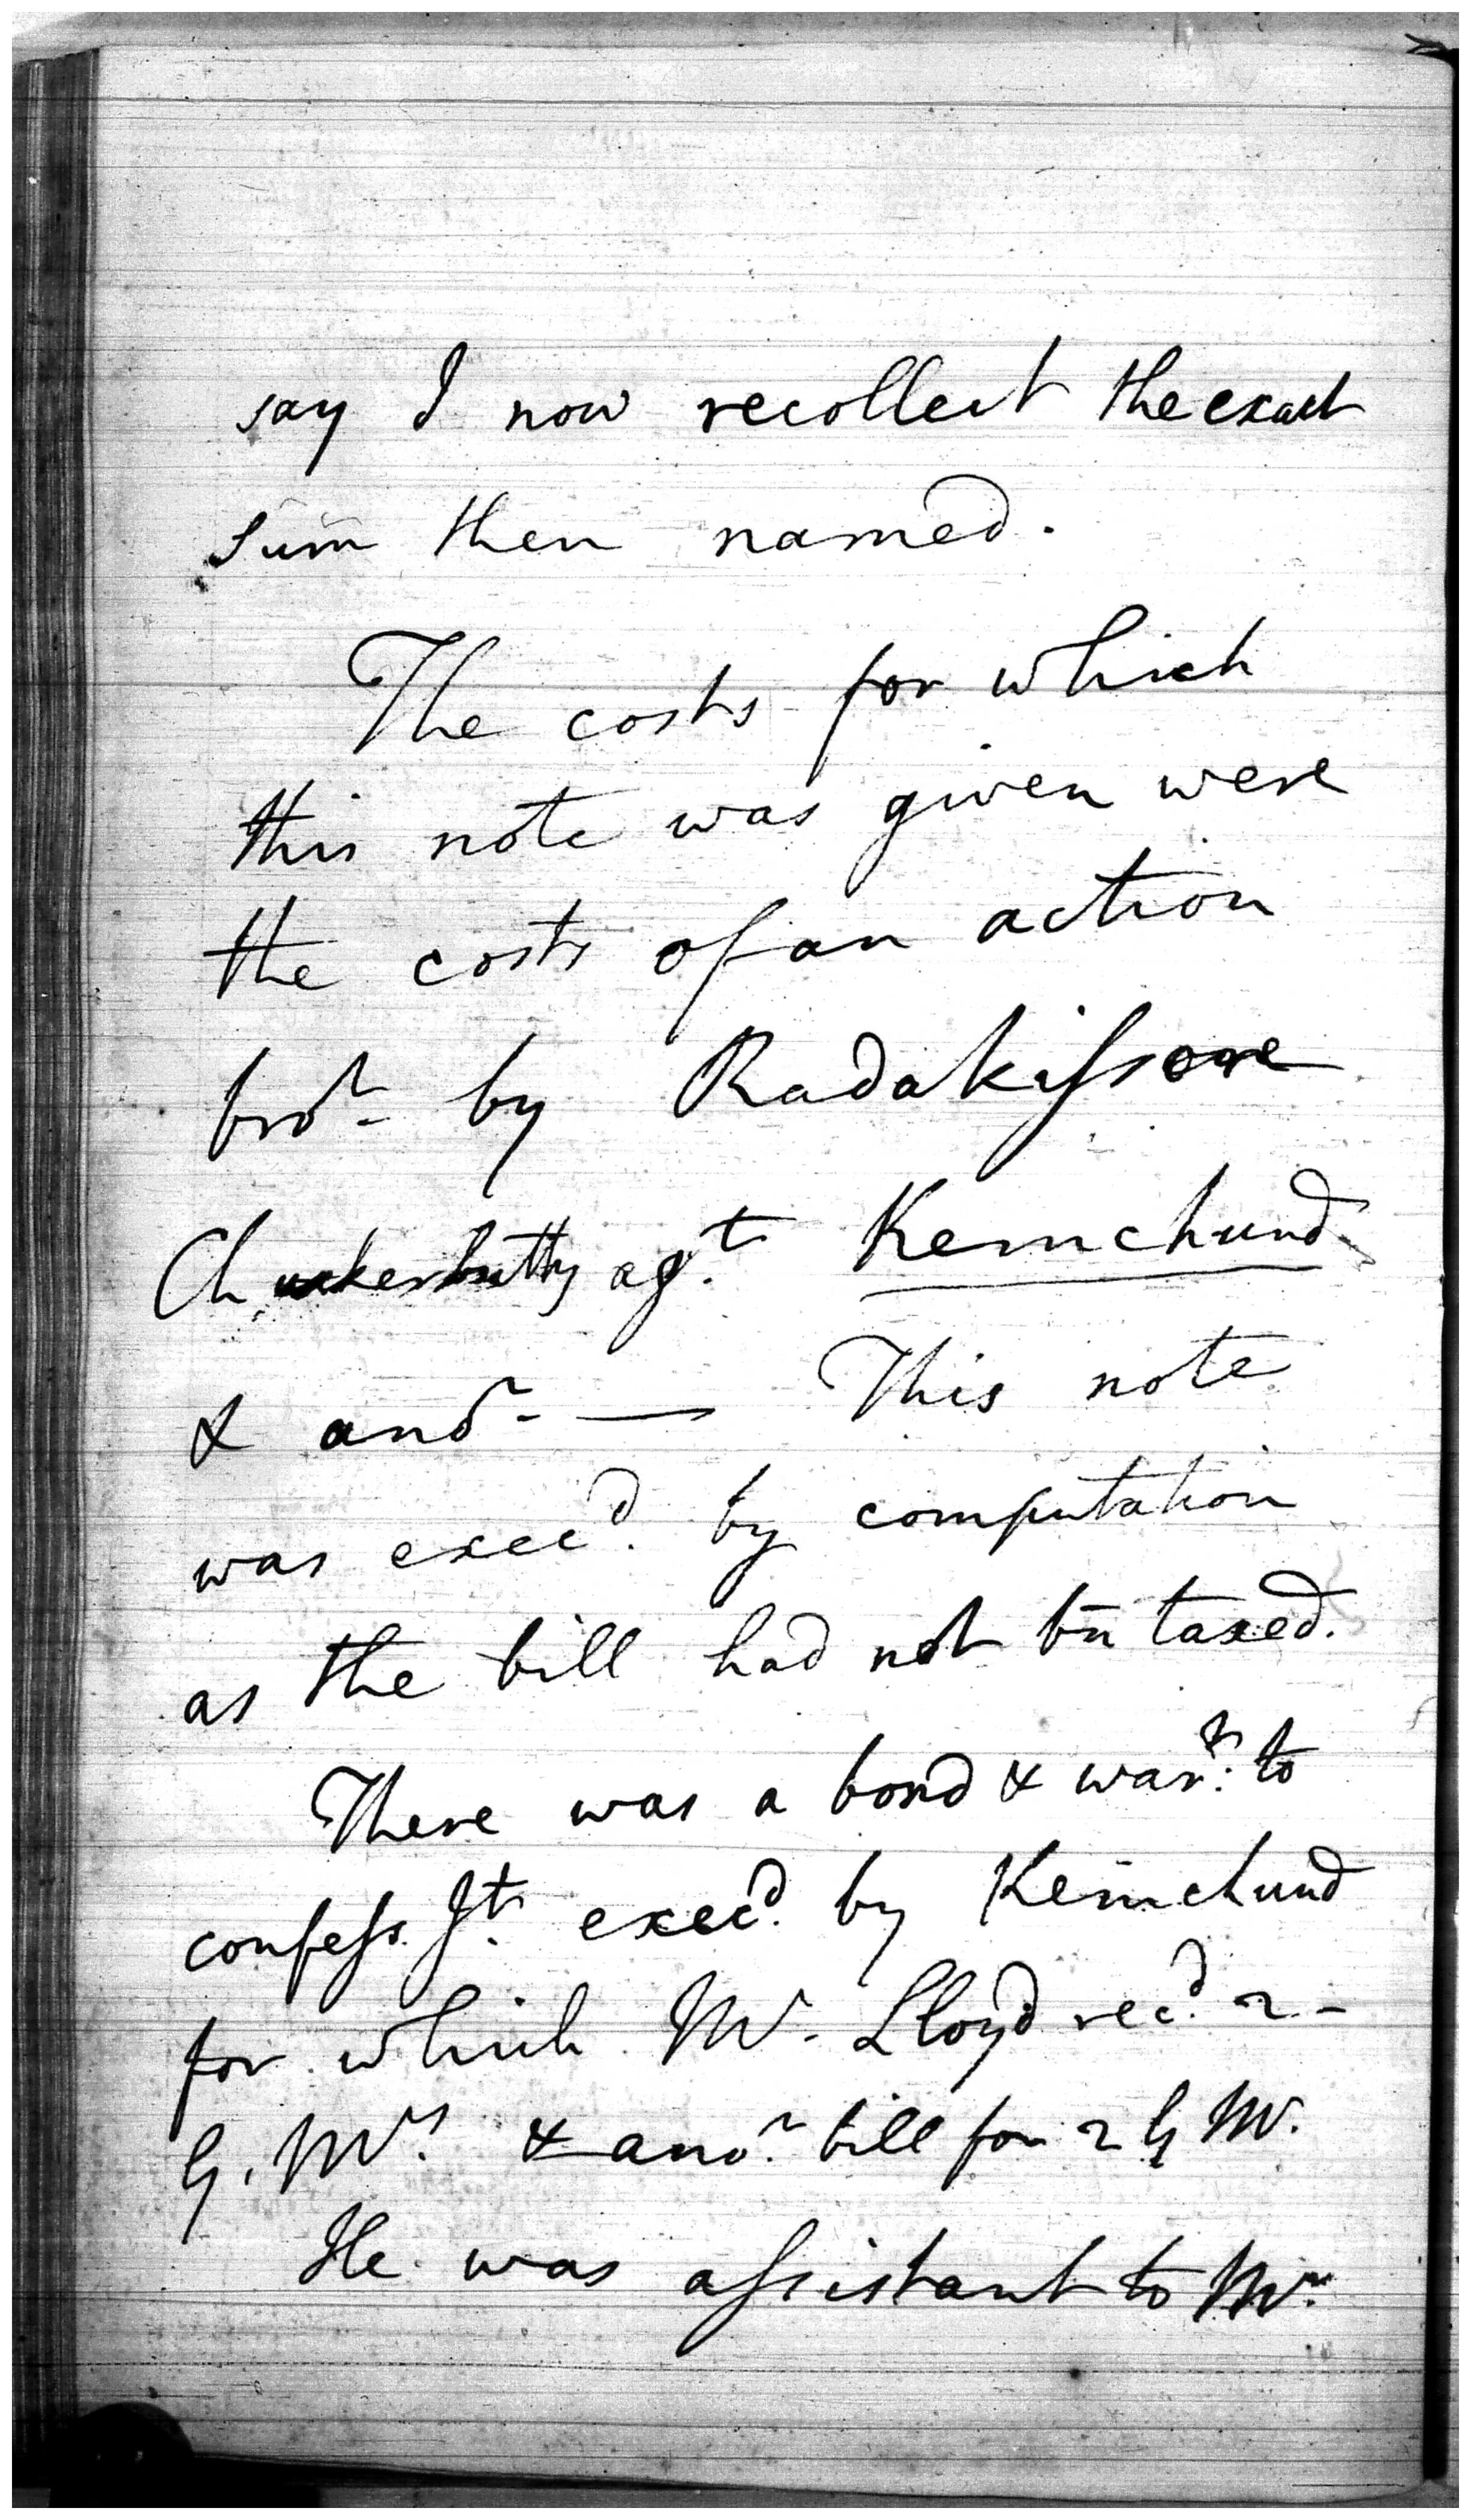 say I now recollect the exact
sum then named.
The costs for which
this note was given were
the costs of an action
bro.^r by Radakissore
Chuckerbutty ag.^t Kemchund
& ano^r - — This note
was exec.^d by computation
as the bill had not bn taxed.
There was a bond & warr.^t to
confess J.^t exec.^d by Kemchund
for which M^r. Lloyd rec.^d 2 -
G. M^rs. & ano.^r bill for 2 G M^r.
He was assistant to M^r.